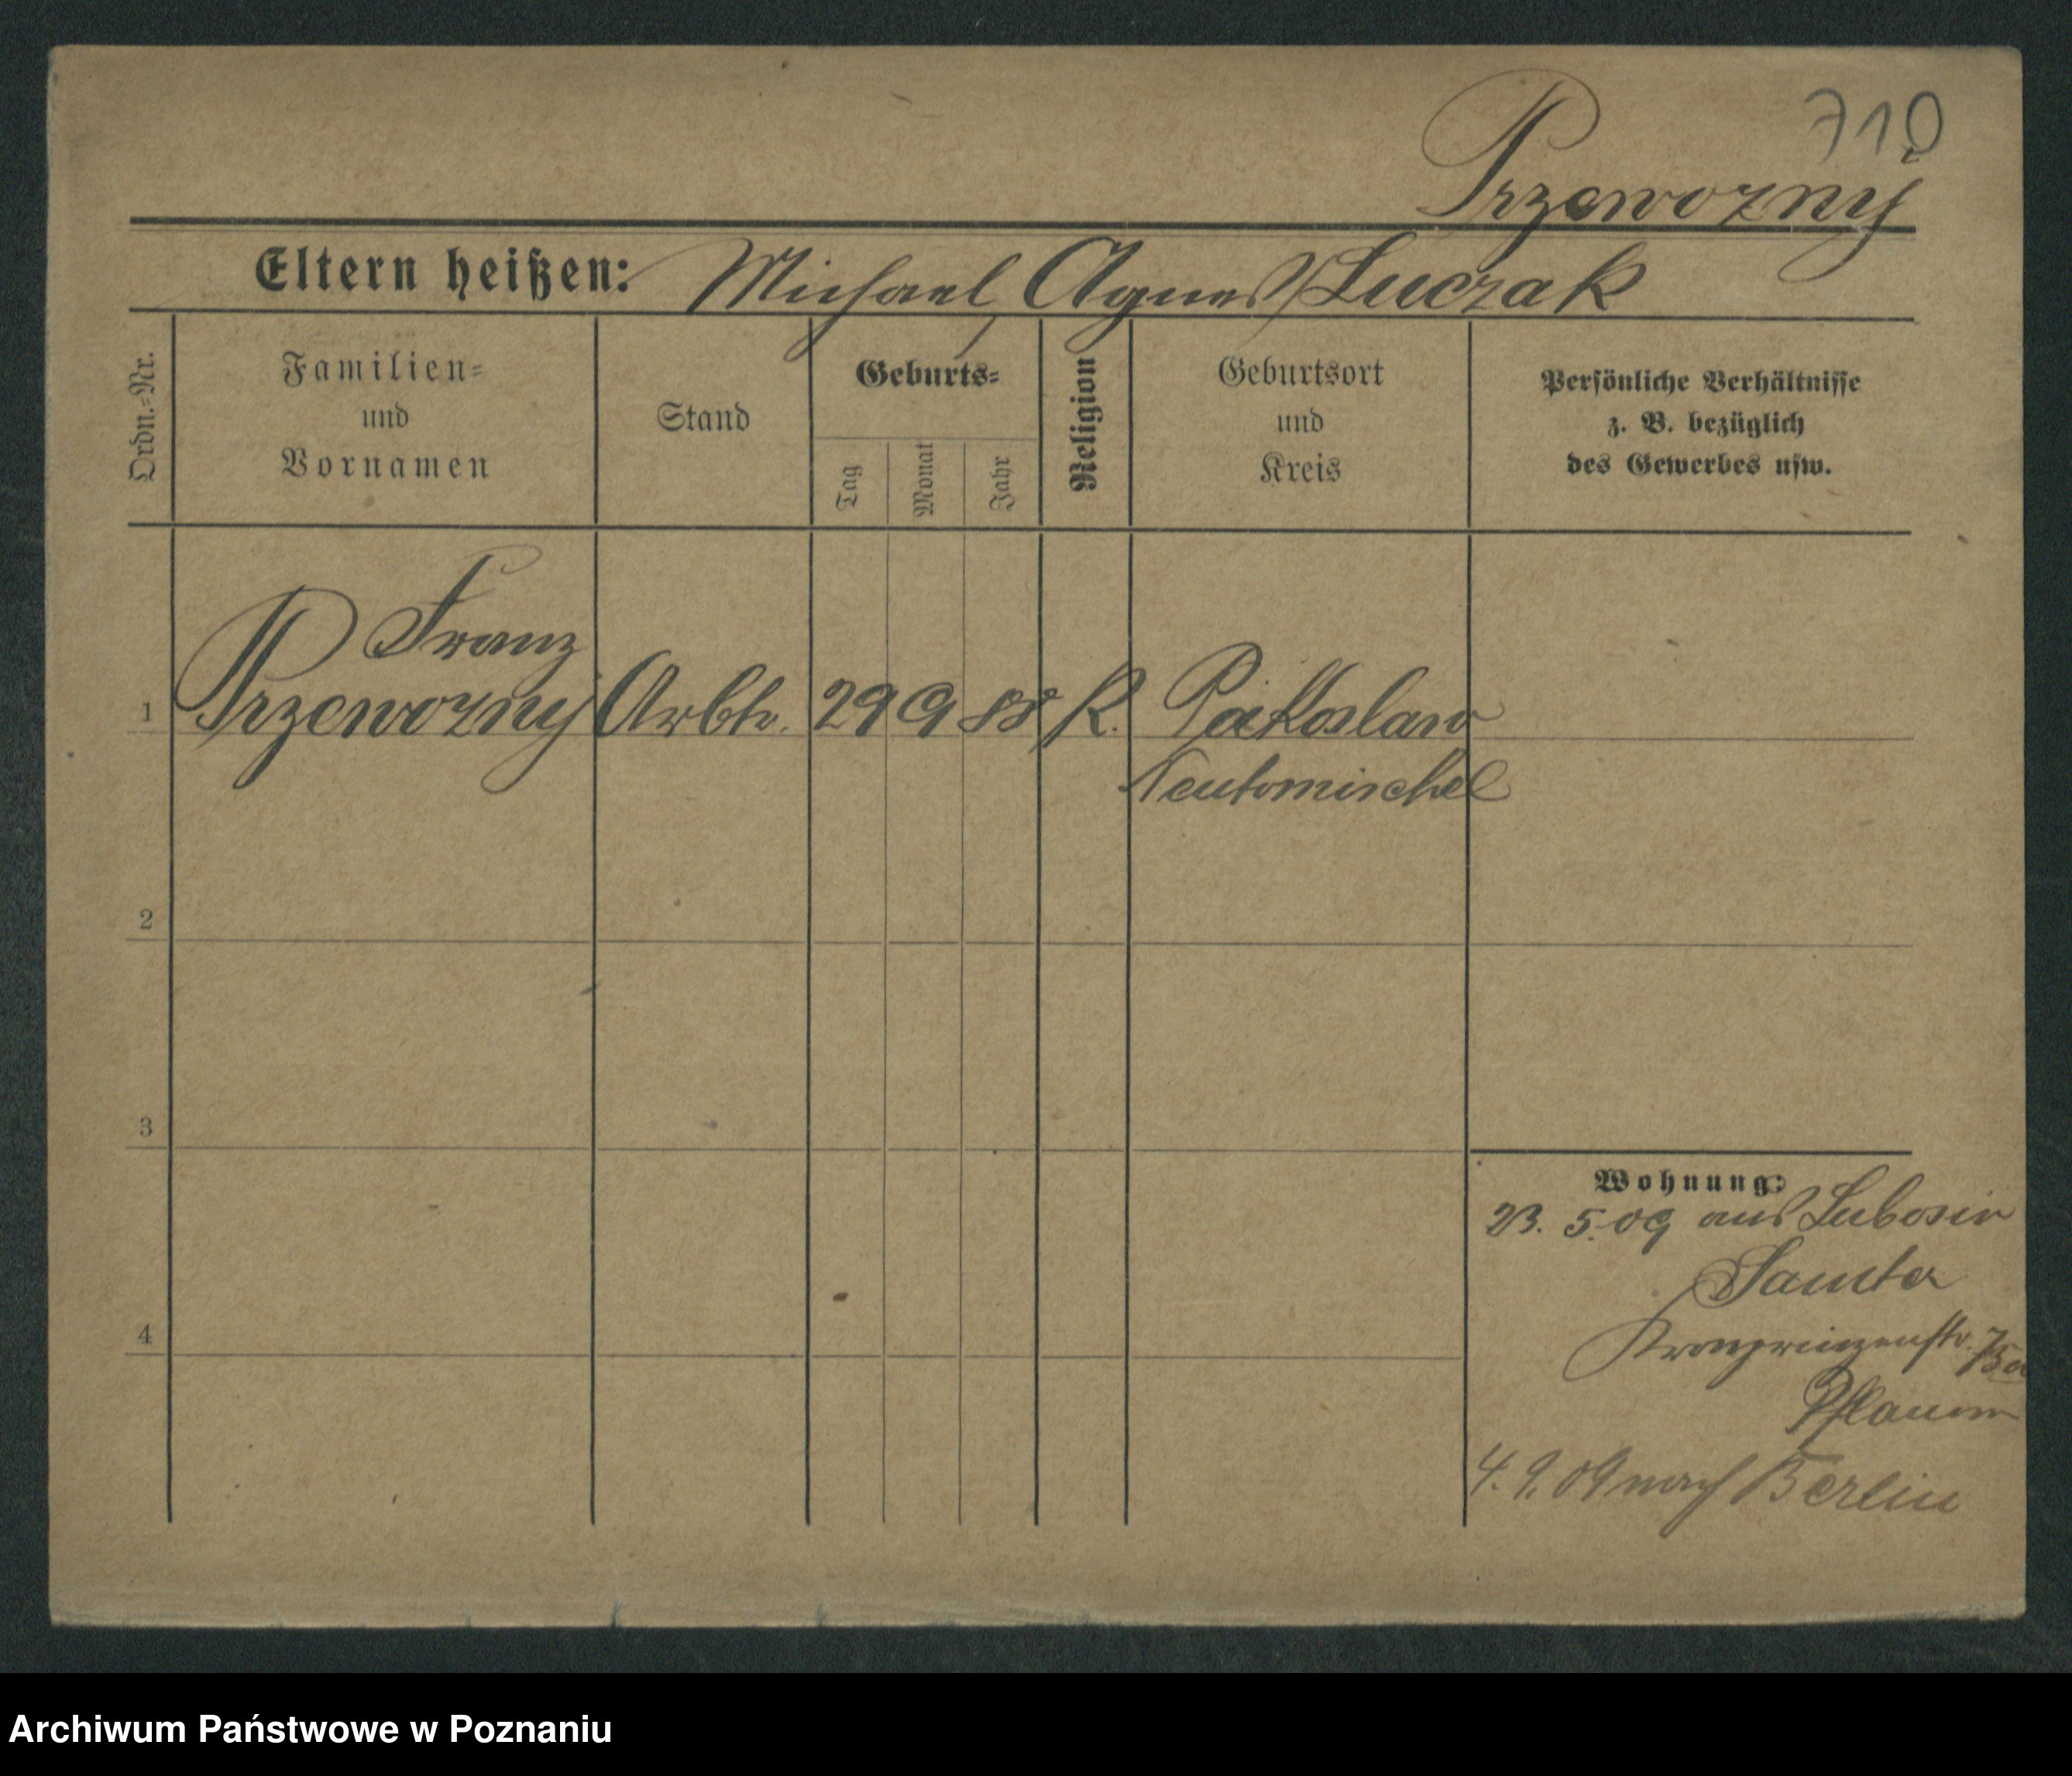 710
Przewozny
Eltern heißen: Michael, Agnes Luczak
Ordn.-Nr.
Familien-
und
Vornamen
Stand
Geburts-
Tag
Monat
Jahr
Religion
Geburtsort
und
Kreis
Persönliche Verhältnisse
z. B. bezüglich
des Gewerbes usw.
Franz
1 Przewozny Arbtr. 29 9 88 K. Pakoslaw
Neutomischel
2
3
4
Wohnung:
23. 5. 09 aus Lubosin
Samter
Kronprinzenstr.
4. 9. 09 nach Berlin
Archiwum Państwowe w Poznaniu